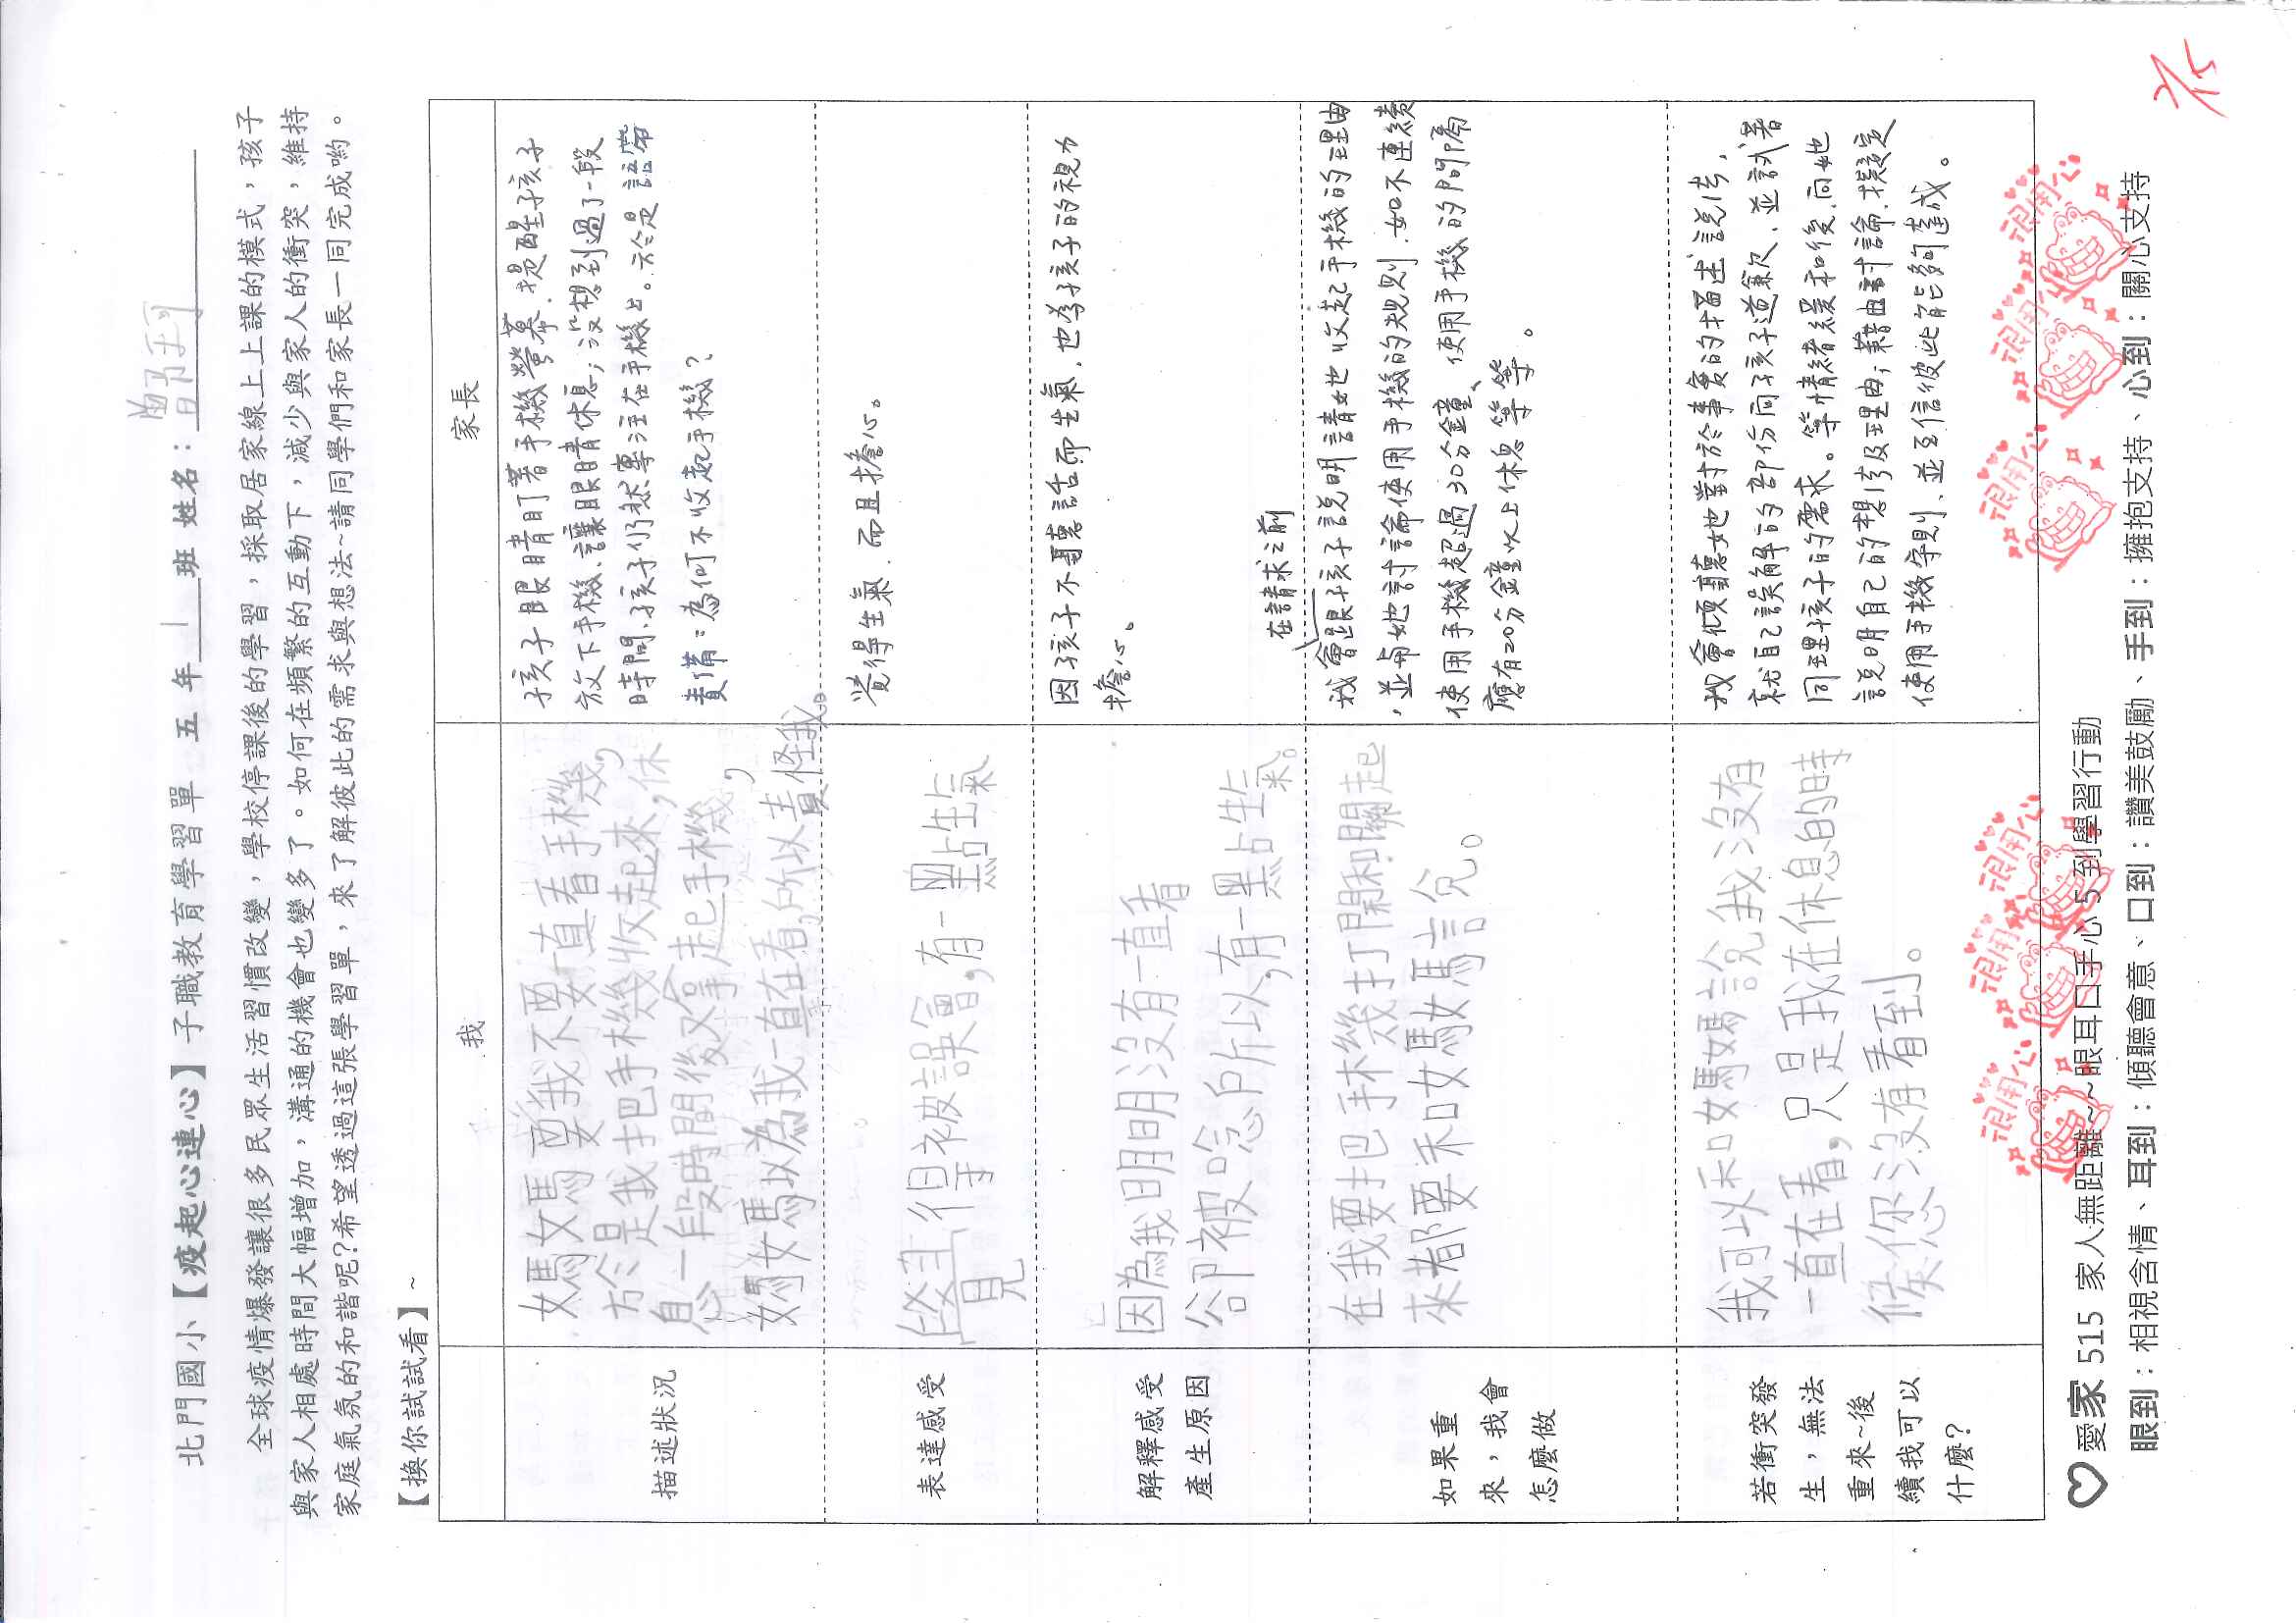 北門國小【疫起心連心】子職教育學習單 五 年 1 班 姓名：曾
全球疫情爆發讓很多民眾生活習慣改變，學校停課後的學習，採取居家線上上課的模式，孩子
與家人相處時間大幅增加，溝通的機會也變多了。如何在頻繁的互動下，減少與家人的衝突，維持
家庭氣氛的和諧呢?希望透過這張學習單，來了解彼此的需求與想法~請同學們和家長一同完成喲。
【換你試試看】~
我
家長
描述狀況
媽媽要我不要一直看手機，
於是我把手機收起來，休
息一段時間後又拿起手機，
媽媽以為我一直在看，所以責怪我。
孩子眼睛盯著手機螢幕，提醒孩子
放下手機、讓眼睛休息；沒想到過了一段
時間，孩子仍然專注在手機上。於是語帶
責備：為何不收起手機？
表達感受
覺得被誤會，有一點生氣
覺得生氣，而且擔心。
解釋感受
產生原因
因為我明明沒有一直看
卻被唸所以，有一點生氣。
因孩子不聽話而生氣，也為孩子的視力
擔心。
如果重
來，我會
怎麼做
在我要把手機打開和關起
來都要和媽媽說。
在請求之前
我會跟孩子說明請她收起手機的理由
，並與她討論使用手機的規則，如不連續
使用手機超過30分鐘、使用手機的間隔
應有20分鐘以上休息等等。
若衝突發
生，無法
重來~後
續我可以
什麼?
我可以和媽媽說我沒有
一直在看，只是我在休息的時
候您沒有看到。
我會傾聽她對於事實的描述說法，
就自己誤解的部份向孩子道歉、並試著
同理孩子的需求。等情緒緩和後，向她
說明自己的想法及理由；藉由討論，擬定
使用手機守則、並互信彼此皆能夠達成。
很用心
很用心
很用心
很用心
很用心
愛家 515 家人無距離~~眼耳口手心 5 到學習行動
眼到：相視含情、耳到：傾聽會意、口到：讚美鼓勵、手到：擁抱支持、心到：關心支持